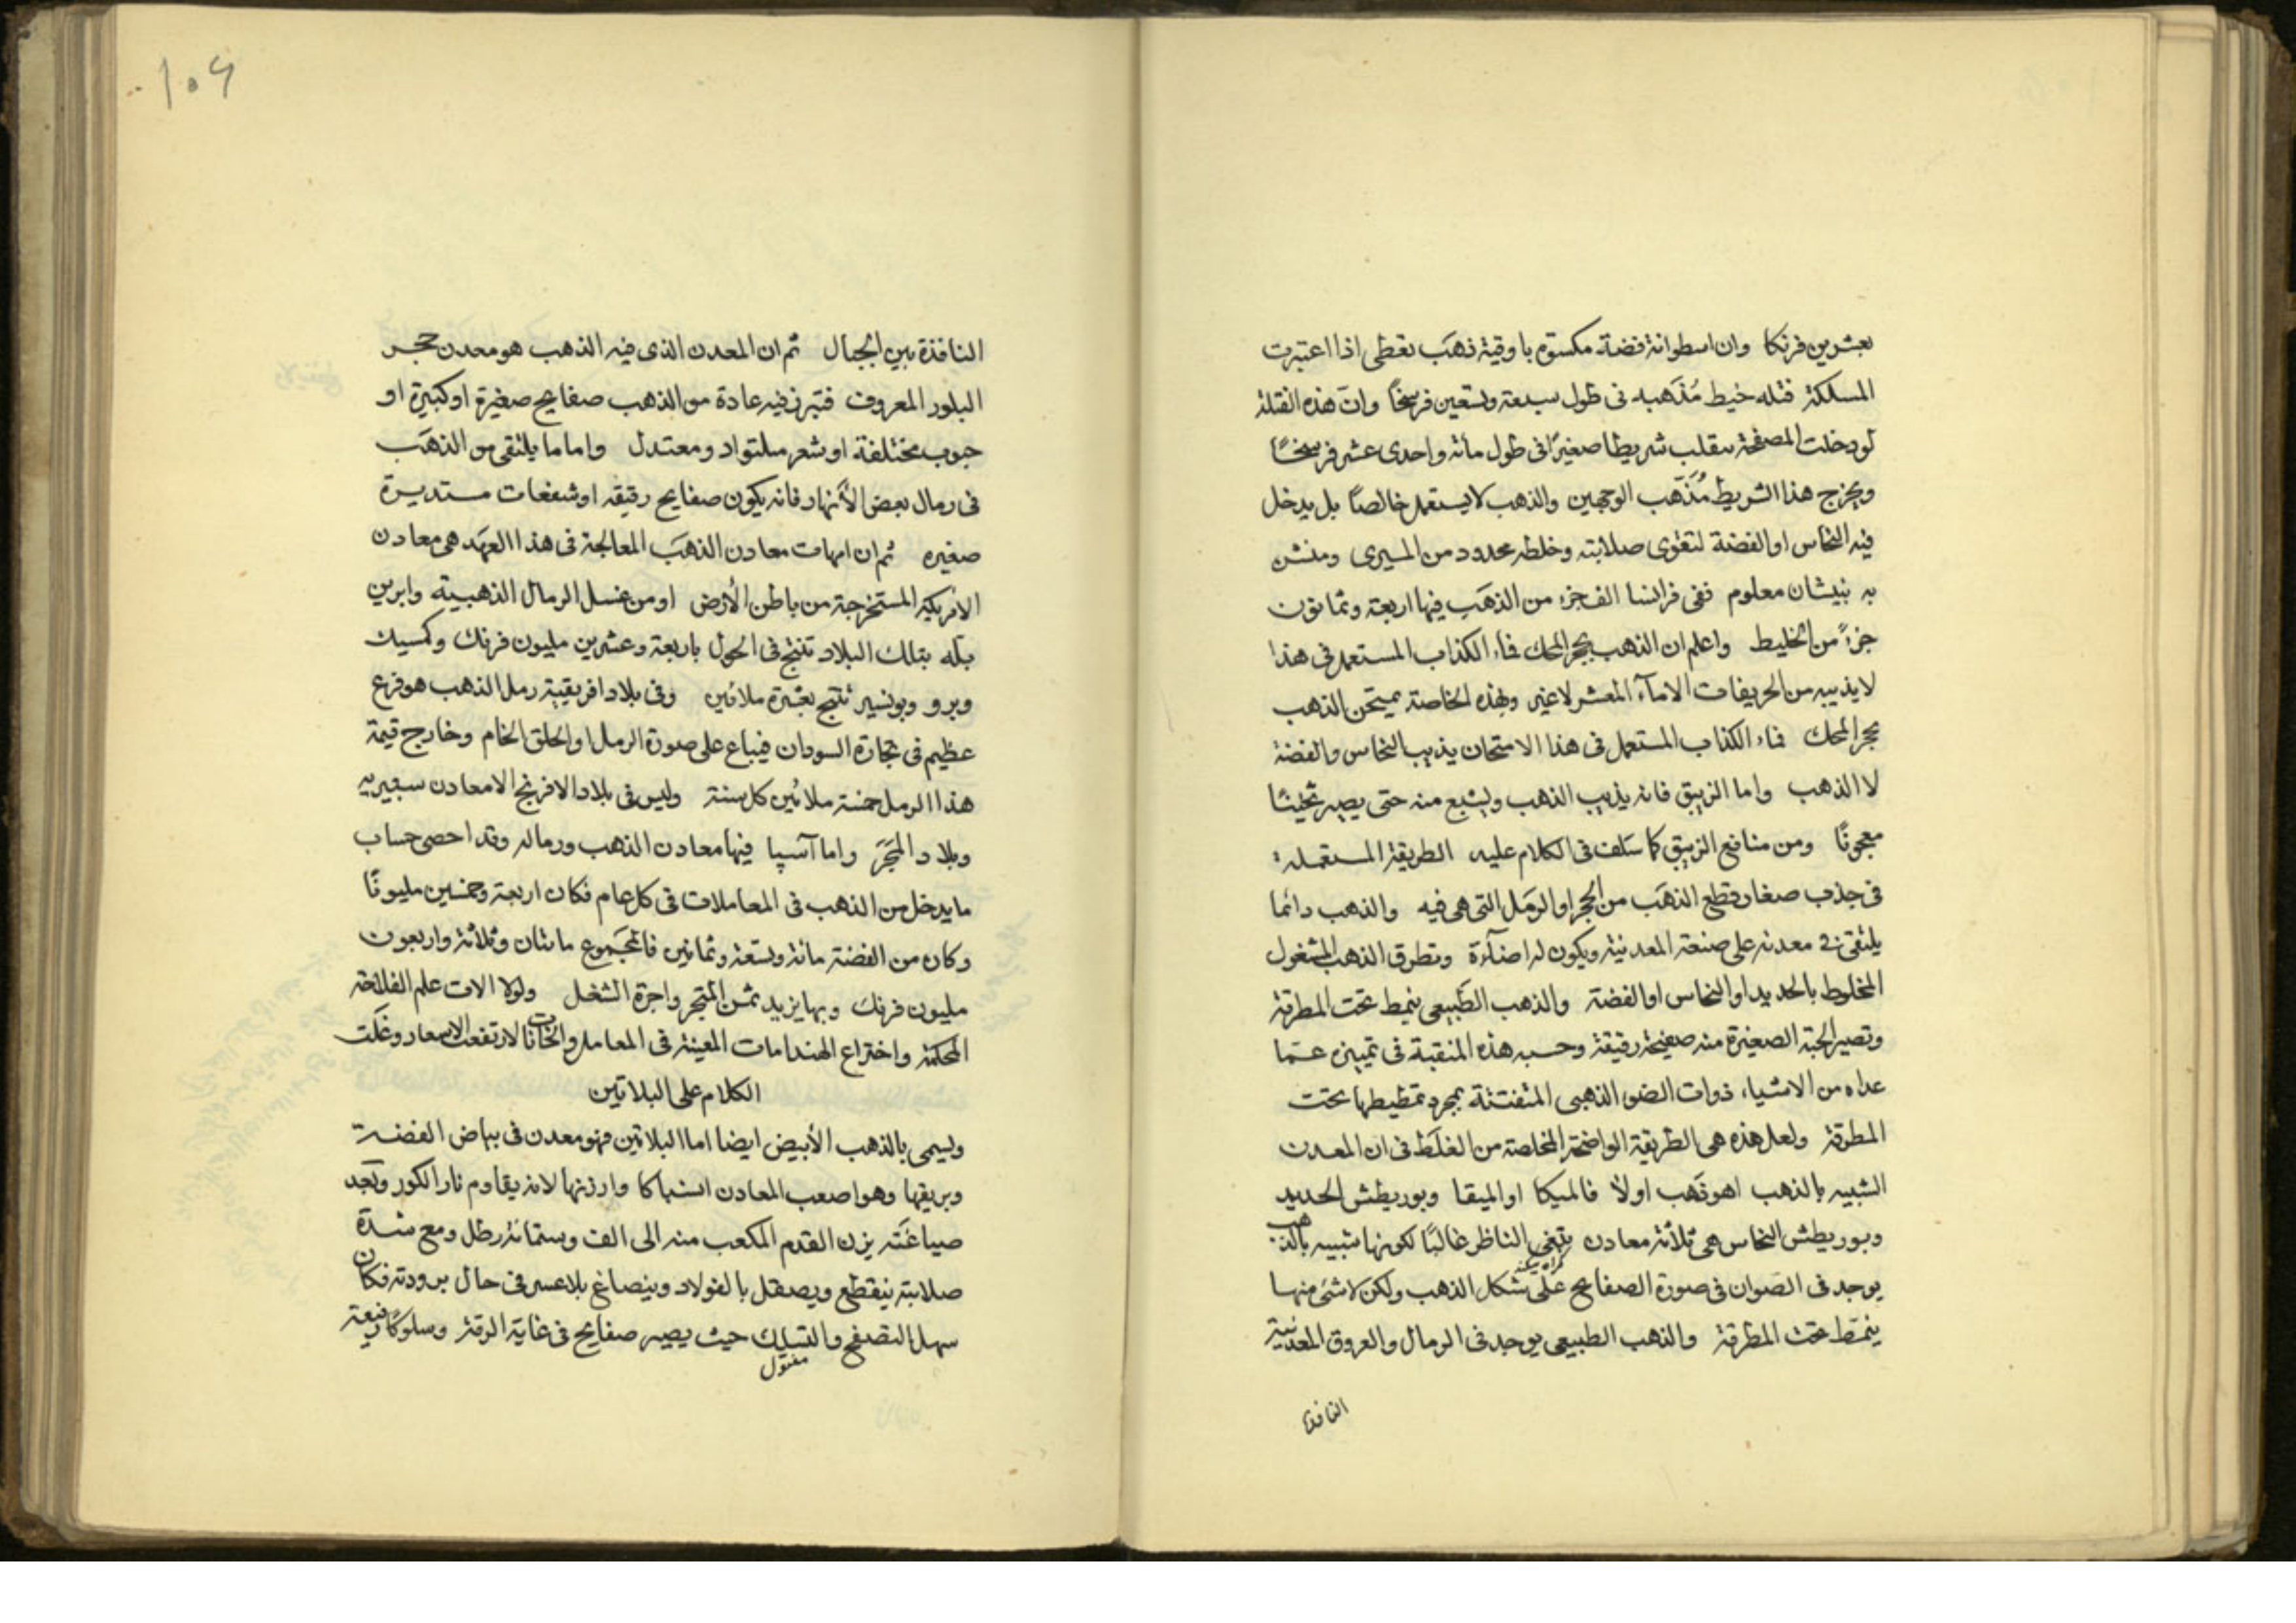 بعشرين فرنكا وان اسطوانة فضة مكسوّم باوقية ذهَب تغطى اذا اعتبرت
المسلكة فتله خيط مُذَهبه فى طول سبعة وتسعين فرسخًا وانّ هذه الفتلة
لو دخلت المصفحة ينقلب شريطا صغيرًا فى طول مائة واحدى عشر فرسخًا
ويخرج هذا الشريط مُذَهّب الوجهين والذهب لا يستعمل خالصًا بل يدخل
فيه النحاس او الفضة لتقوى صلابته وخلطه محدود من الميرى ومنشن
به بنيشان معلوم ففى فرانسا الف جزء من الذهَب فيها اربعة وثمانون
جزءً من الخليط واعلم ان الذهب بحجر المحك فماء الكذاب المستعمل فى هذا
لا يذيبه من الحريفات الا مآء المعشر لا غير وبهذه الخاصة يمتحن الذهب
بحجر المحك فماء الكذاب المستعمل فى هذا الامتحان يذيب النحاس والفضة
لا الذهب واما الزيبق فانه يذيب الذهب ويشبع منه حتى يصير ثخينًا
معجونًا ومن منافع الزيبق كما سَلف فى الكلام عليه الطريقة المستعملة
فى جذب صغار قطع الذهَب من الحجر او الرمَل التى هى فيه والذهب دائما
يلتقى فى معدنه على صنعته المعدنية ويكون له اضآءة وتطرق الذهب المشغول
المخلوط بالحديد او النحاس او الفضة والذهب الطَبيعى ينمط تحت المطرقة
وتصير الحبة الصغيرة منه صفيحة رقيقة وحسبه هذه المنقبة فى تمييزه عمّا
عداه من الاشياء ذوات الضو الذهبى المتفتتة بمجرد تمطيطها تحت
المطرقة ولعل هذه هى الطريقة الواضحة المخلصة من الغلَط فى ان المعدن
الشبيه بالذهب اهو ذَهب اولا فالميكا او الميقا وبوريطش الحديد
وبوريطش النحاس هى ثلاثة معادن يتهنى الناظر غالبًا لكونها شبيه بالذهب
يوجد فى الصَوان فى صورة الصفايح على شكل الذهب ولكن لا شئ منها
ينمَط تحت المطرقة والذهب الطبيعى يوجد فى الرمال والعروق المعدنية
النافذة
١٠٦
النافذة بين الجبال ثم ان المعدن الذى فيه الذهب هو معدن حجر
البلور المعروف فتبرز فيه عادة من الذهب صفايح صغيرة او كبيرة او
حبوب مختلفة او شعر ملتواد ومعتدل واما ما يلتقى من الذهَب
فى رمال بعض الأنهار فانه يكون صفايح رقيقه او شفعات مستديرة
صغيره ثم ان امهات معادن الذهَب المعالجة فى هذا العهَد هى معادن
الامريكية المستخرجة من باطن الأرض او من غسل الرمال الذهبية وابريز
بلّه بتلك البلاد تنتج فى الحول باربعة وعشرين مليون فرنك وكمسيك
وبرو وبونسير تنتج بعشرة ملائين وفى بلاد افريقية رمل الذهب هو فرع
عظيم فى تجارة السودان فيباع على صورة الرمل او الحلق الخام وخارج قيمة
هذا الرمل خمسة ملائين كل سنة وليس فى بلاد الافرنج الا معادن سبيريه
وبلاد المجَرَ واما آسيا فيها معادن الذهب ورماله وقد احصى حساب
ما يدخل من الذهب فى المعاملات فى كل عام فكان اربعة وخمسين مليونًا
وكان من الفضة مائة وتسعة وثمانين فالمجَموع مائتان وثلاثة واربعون
مليون فرنك وبها يزيد ثمن المتجر واجرة الشغل ولولا الات علم الفلاحة
المحكمة واختراع الهندامات المعينة فى المعامل والخانات لارتفعت الاسعار وغلَت
الكلام على البلاتين
ويسمى بالذهب الأبيض ايضا اما البلاتين فهو معدن فى بياض الفضة
وبريقها وهو اصعب المعادن انسباكا وارزنها لانه يقاوم نار الكور وتجد
صياغَته يزن القدم المكعب منه الى الف وستمائة رطل ومع شدة
صلابته ينقطع ويصقل بالفولاد وينصاغ بلا عسر فى حال برودته فكان
سهل التصفح والتسليك حيث يصير صفايح فى غاية الرقة وسلوكًا رفيعة
مفتول